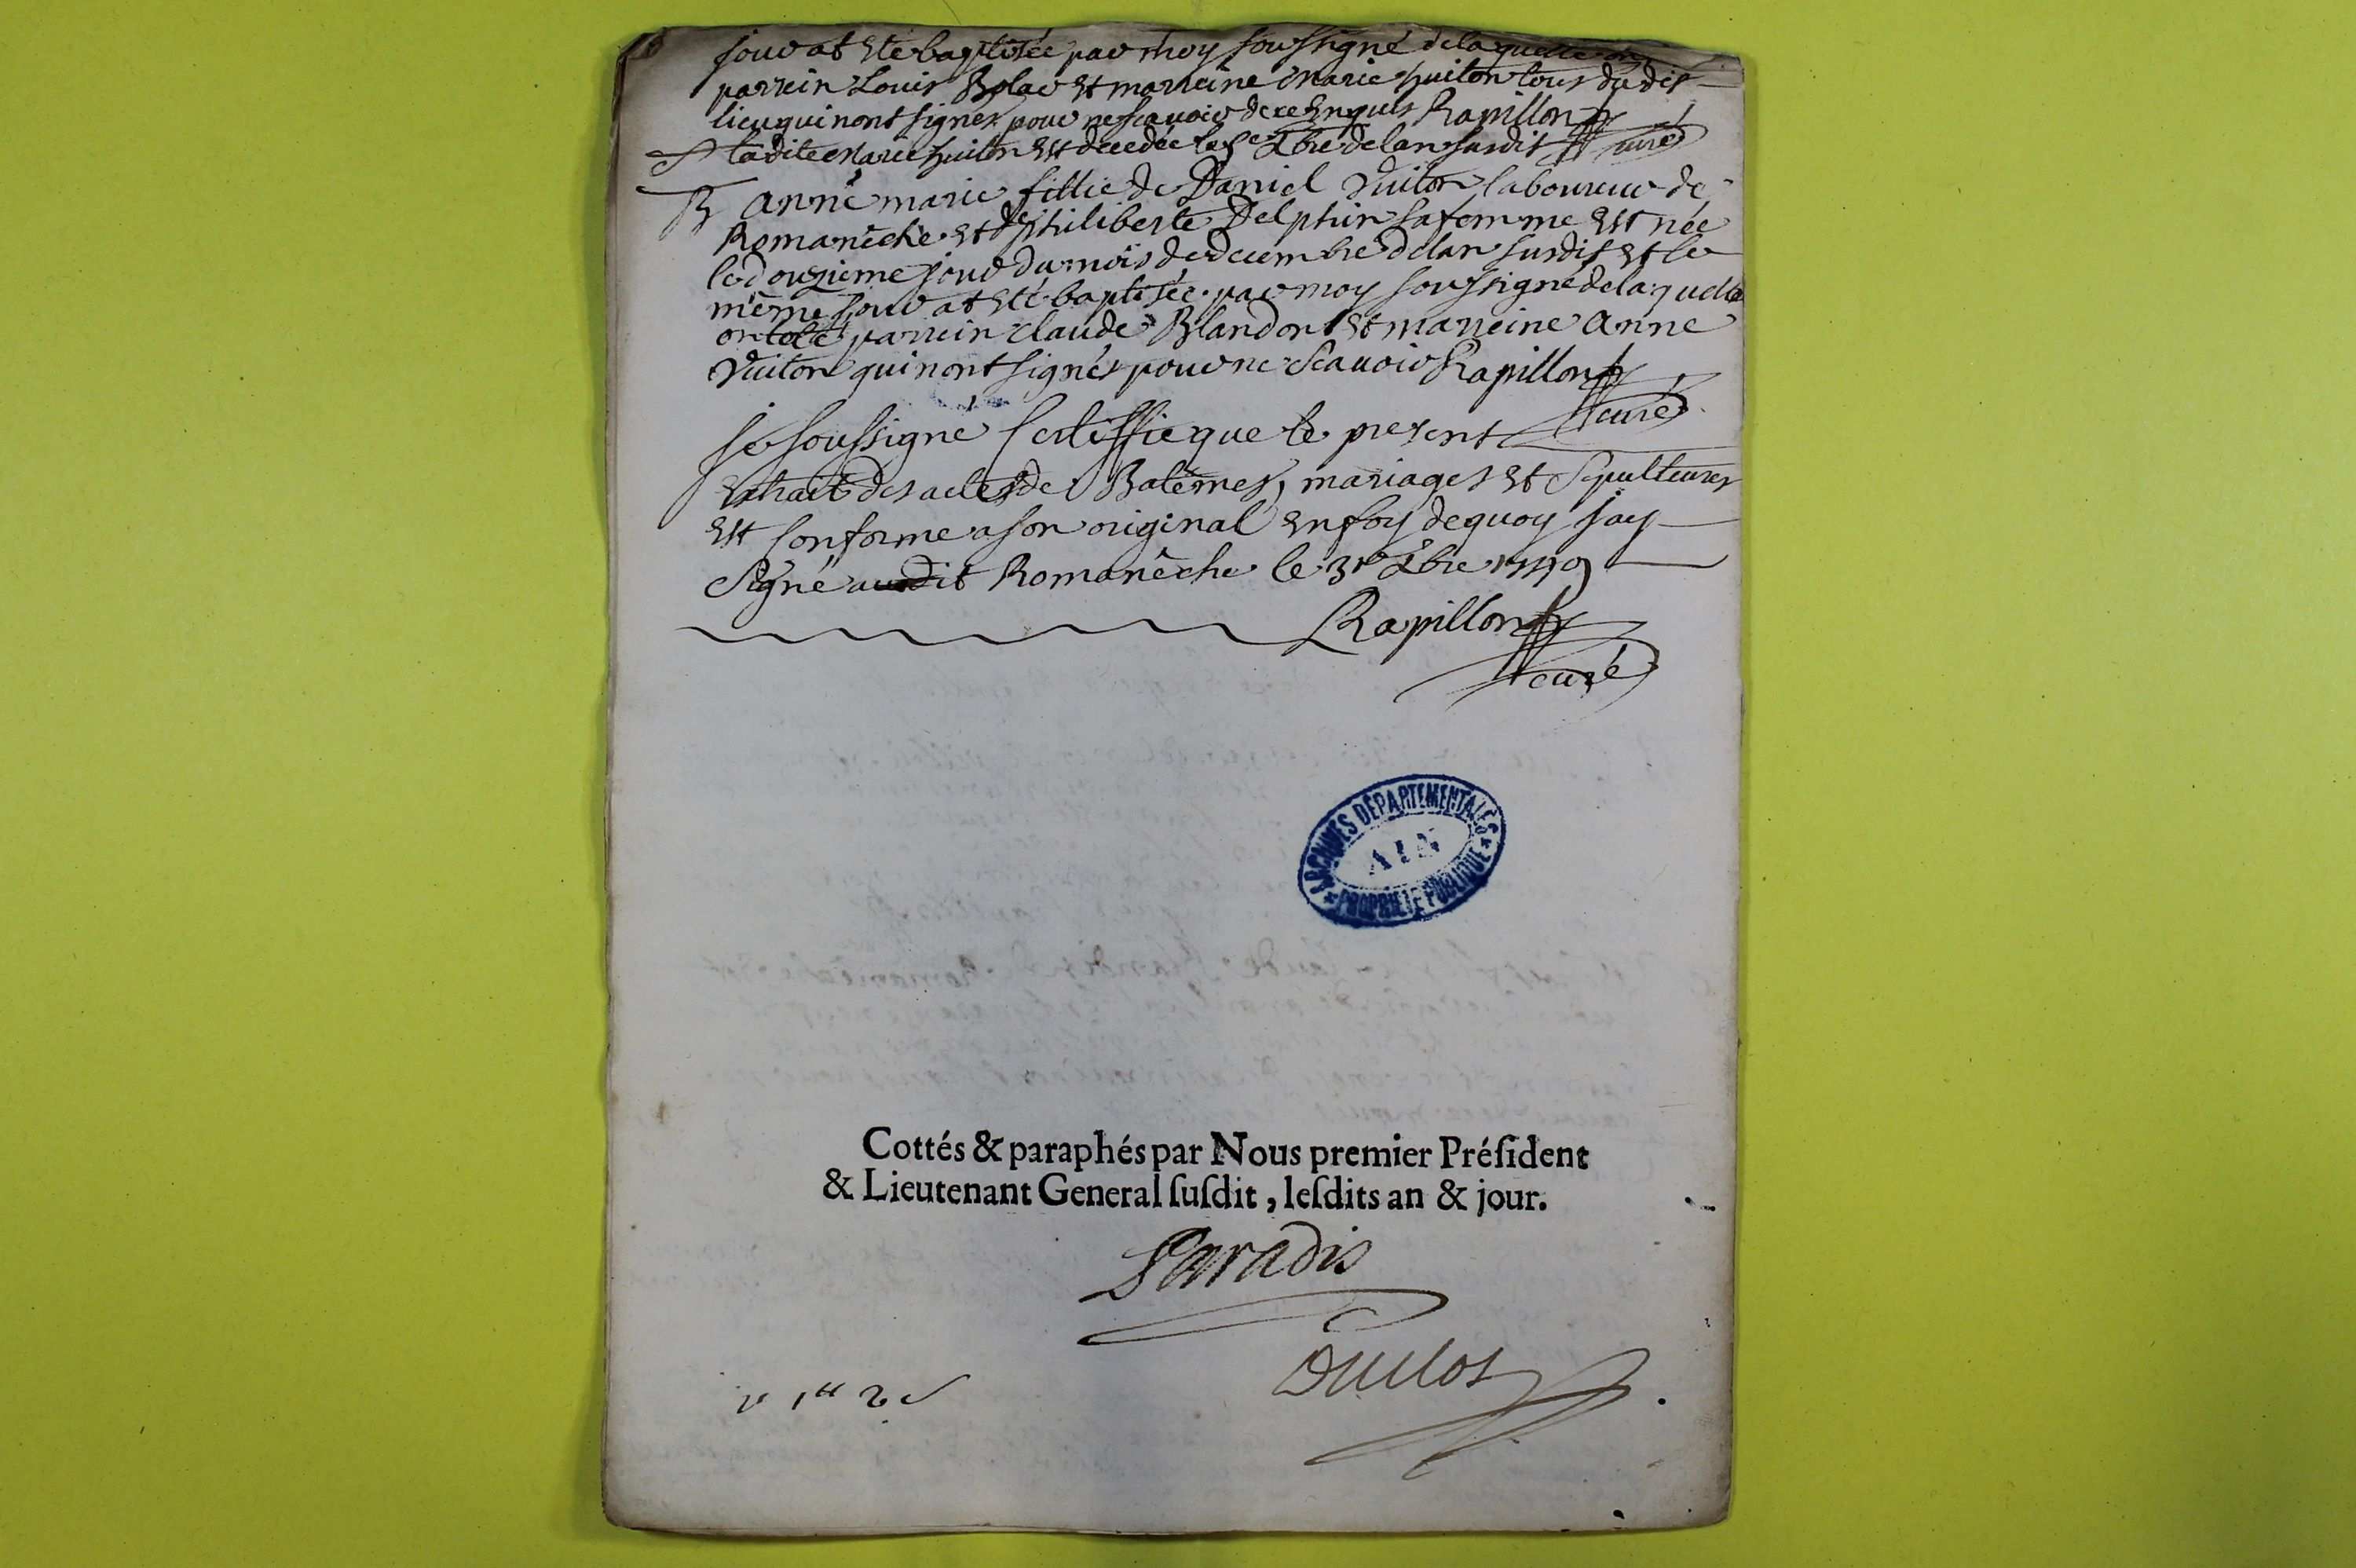 jour at ete baptisée par moy soussigné de laquelle on
parrein Louis Bolac et marreine Marie huiton tous du dit
lieu qui nont signes pour ne scavoir de ce enquis Rapillon
ladite Marie huiton est decedée le Xbre de lan susdit curé
B anne marie fillie de Daniel Vuiton laboureur de
Romanêche et de philiberte Delphin sa femme est née
le douzieme jour du mois de decembre de lan susdit et le
même jour at eté baptisée par moy soussigné de laquelle
on eté parrein claude Blandon et marreine anne
Vuiton qui nont signés pour ne scavoir Rapillon
curé
je soussigné certiffie que le present
extrait des actes de Batêmes, mariages et Sepultures
est conforme a son original en foy de quoy jay
Signé audit Romanêche le 31e Xbre
Rapillon
curé
ARCHIVES DÉPARTEMENTALES
AIN
PROPRIÉTÉ PUBLIQUE
Cottés & paraphés par Nous premier Préſident
& Lieutenant General ſuſdit, leſdits an & jour.
Paradis
Duclos